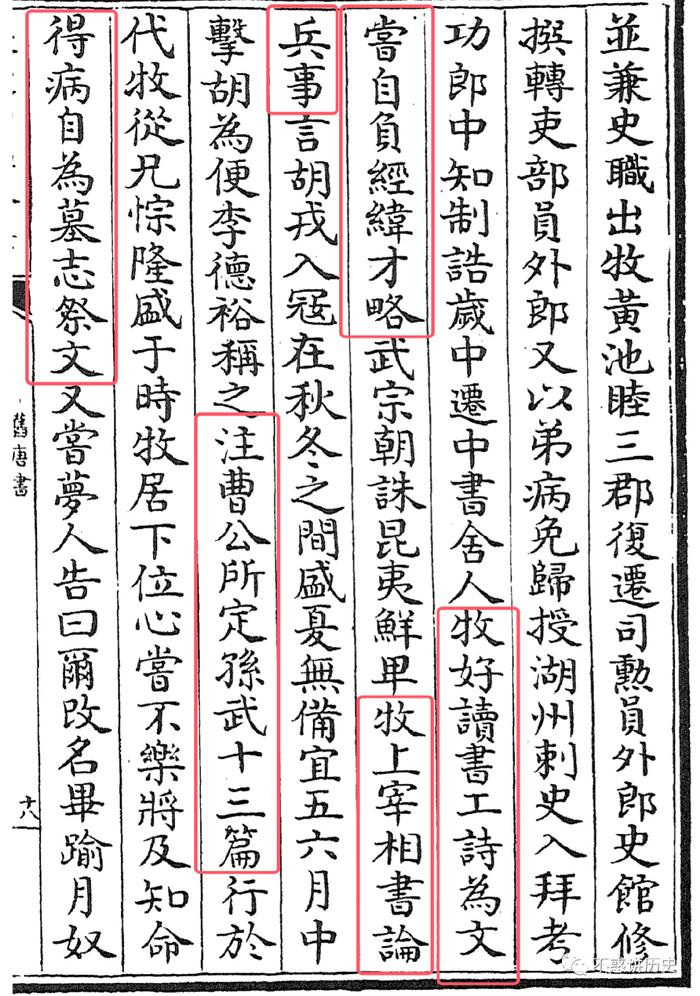 並兼史職出牧黃池睦三郡復遷司勲員外郎史館修
撰轉吏部員外郎又以弟病免歸授湖州刺史入拜考
功郎中知制誥歲中遷中書舍人牧好讀書工詩為文
嘗自負經緯才略武宗朝誅昆夷鮮卑牧上宰相書論
兵事言胡戎入冦在秋冬之間盛夏無備宜五六月中
擊胡為便李德裕稱之注曹公所定孫武十三篇行於
代牧從兄悰隆盛于時牧居下位心嘗不樂將及知命
得病自為墓志祭文又嘗夢人告曰爾改名畢踰月奴
舊唐書
十八
不惑讲历史